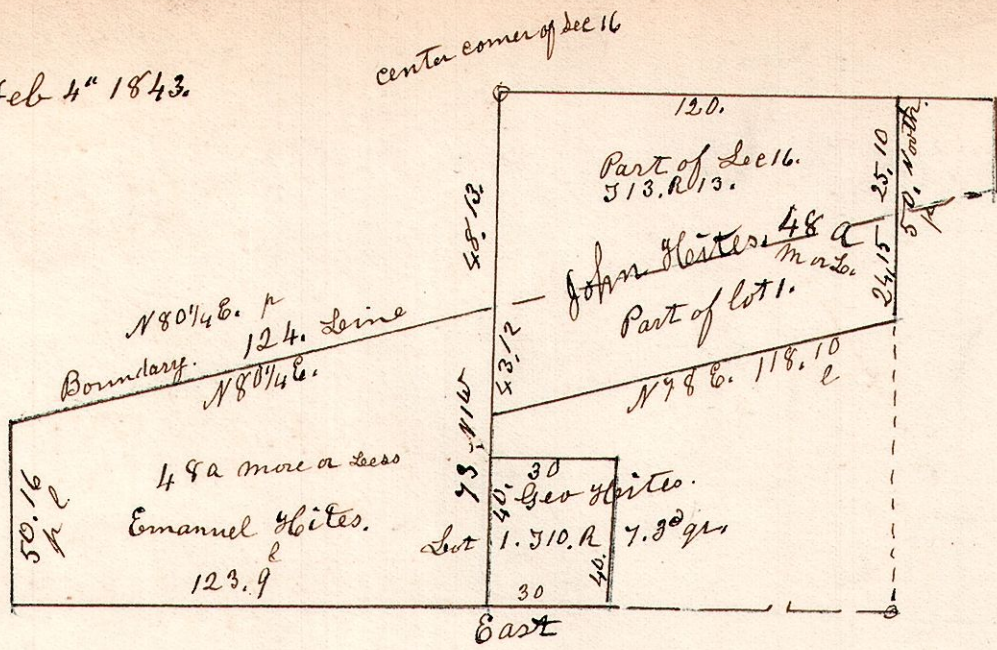 Feb 4" 1843.
center corner of Sec 16
120.
Part of Sec 16.
T13. R13.
48.13
25.10
50. North.
p
John Hites. 48 a
m or L.
24,15
Part of lot 1.
43.12
N 80 1/4 E. p
Boundary. 124. Leine
N 80 1/4 E.
N 78 E. 118.10
l
73 N1W
48 a more or Less
Emanuel Hites.
50.16
p l
l
123.9
30
40.
Geo Hites.
Lot 1. T10. R 7.3d qr.
40.
30
East